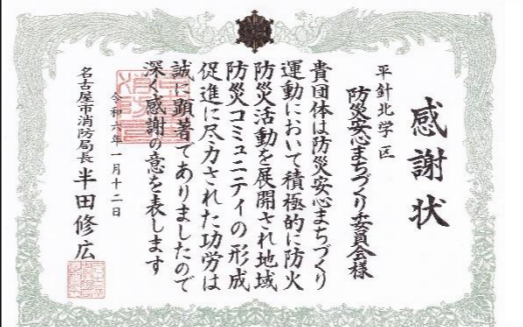 感謝状
平針北学区
防災安心まちづくり委員会様
貴団体は防災安心まちづくり
運動において積極的に防火
防災活動を展開され地域
防災コミュニティの形成
促進に尽力された功労は
誠に顕著でありましたので
深く感謝の意を表します
令和六年一月十二日
名古屋市消防局長 半田修広